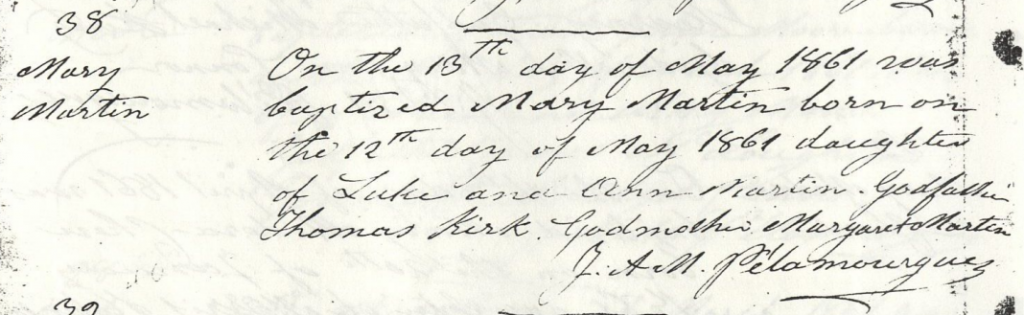 38
Mary
Martin
On the 13th day of May 1861 was
baptized Mary Martin born on
the 12th day of May 1861 daughter
of Luke and Ann Martin. Godfather
Thomas Kirk. Godmother Margaret Martin
J. A. M. Pélamourgues
39